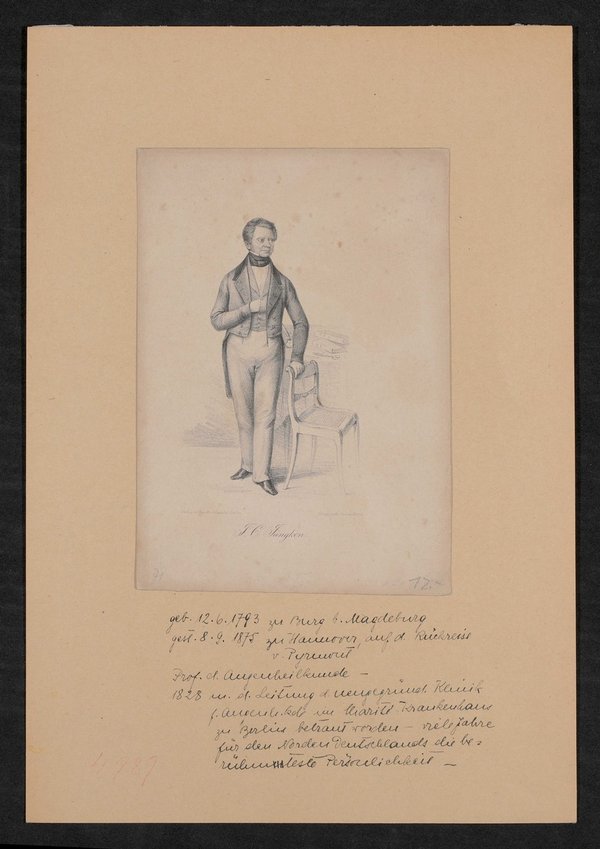 J. C. Jüngken
17.-
geb. 12.6.1793 zu Burg b. Magdeburg
gest. 8.9.1875 zu Hannover, auf d. Rückreise
v. Pyrmont
Prof. d. Augenheilkunde —
1828 m. d. Leitung d neugegründ. Klinik
f. Augenh.kde im Charité Krankenhaus
zu Berlin betraut worden — viele Jahre
für den Norden Deutschlands die be-
rühmteste Persönlichkeit —